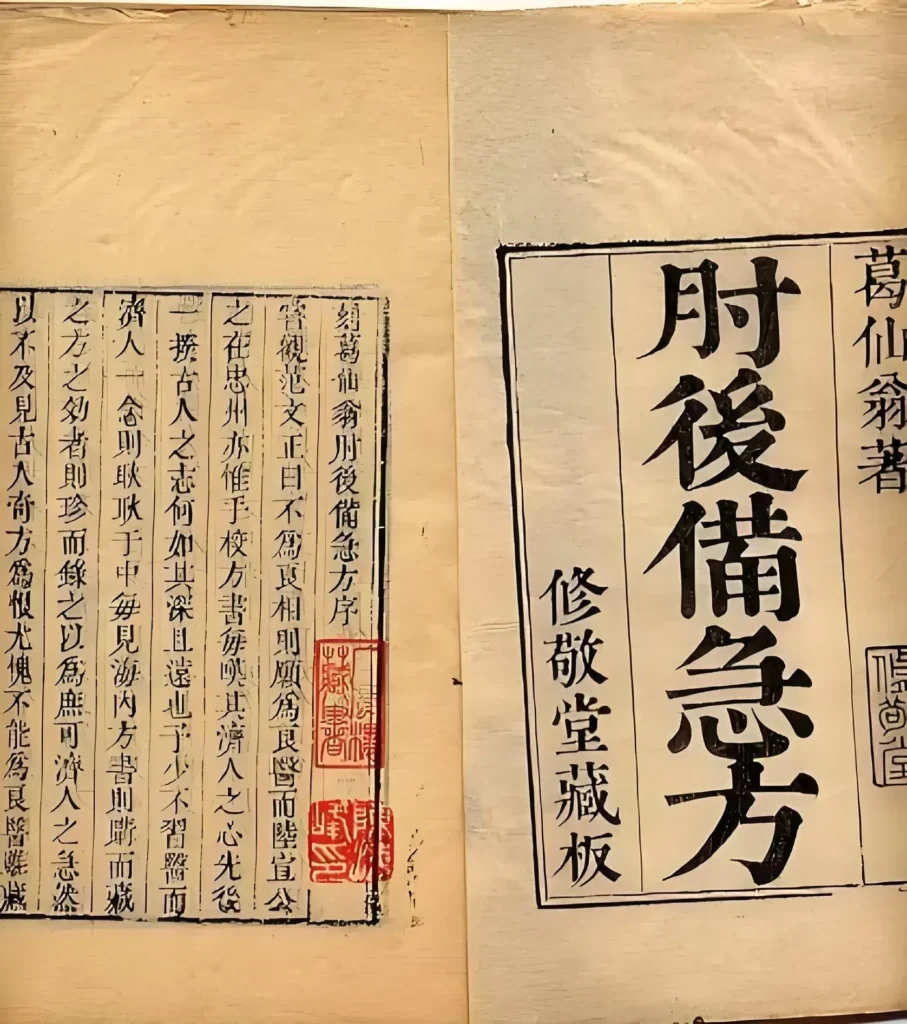 葛仙翁著
修敬堂
肘後備急方
修敬堂藏板
刻葛仙翁肘後備急方序
嘗觀范文正曰不為良相則願為良醫而陸宣公
之在忠州亦惟手校方書每嘆其濟人之心先後
一揆古人之志何如其深且遠也予少不習醫而
濟人一念則耿耿于中每見海內方書則購而藏
之方之効者則珍而錄之以為庶可濟人之急然
以不及見古人奇方為恨尤愧不能為良醫
藏書